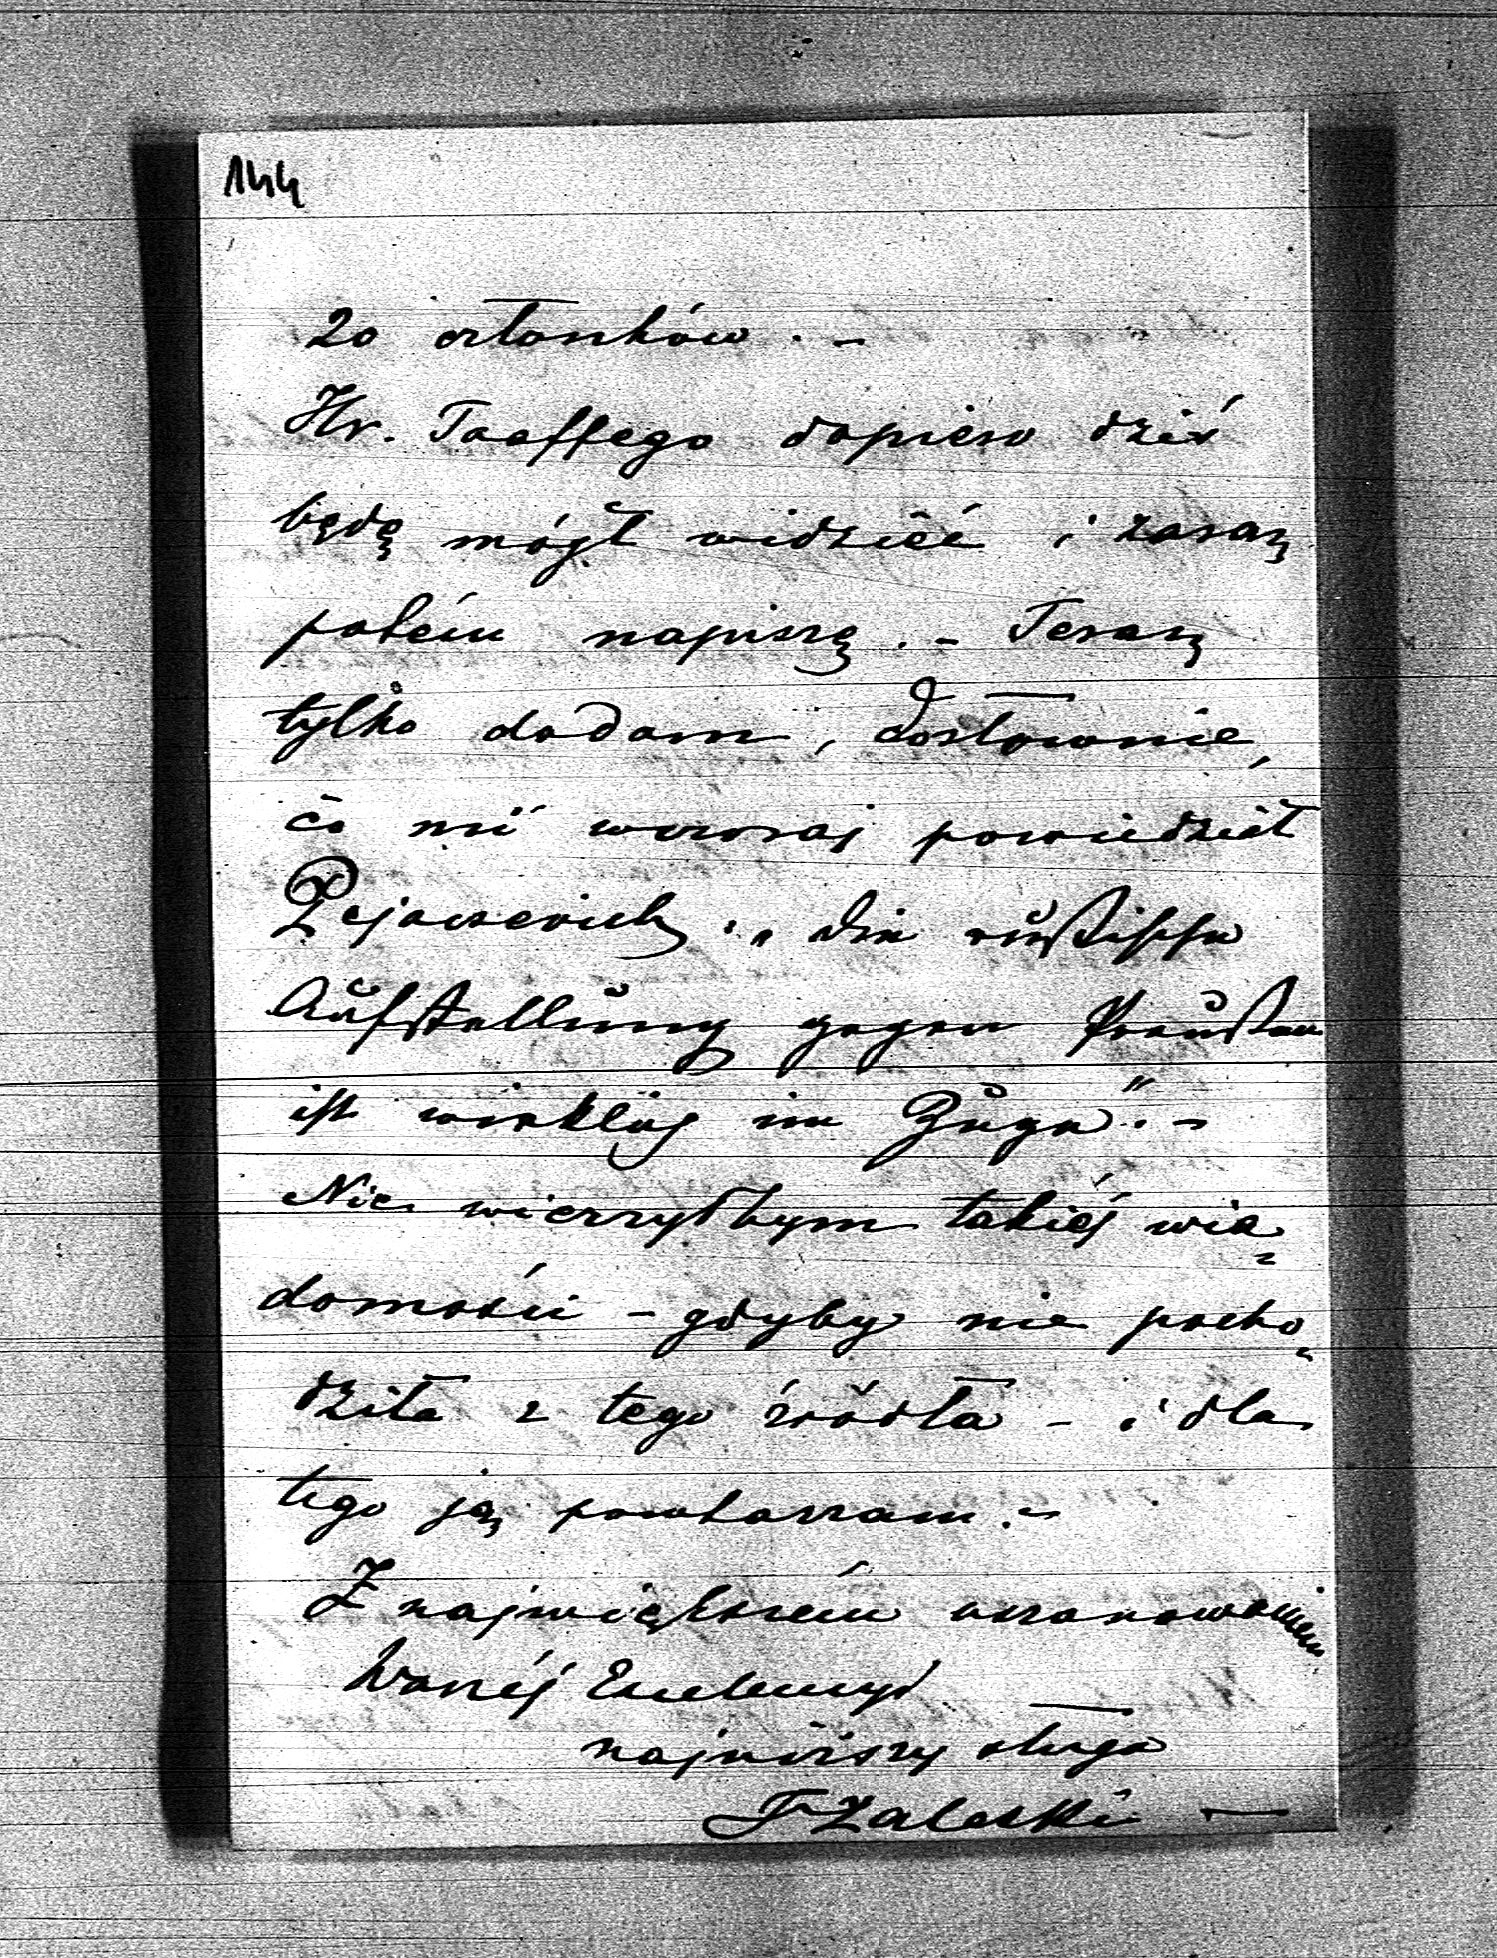 144
20 członków. –
Hr. Taaffego dopiero dziś
będę mógł widzieć i zaraz
potém napiszę. – Teraz
tylko dodam, dosłownie,
co mi wczoraj powiedział
Pejacsevich: „die rußische
Aufstellung gegen Preußen
ist wirklich im Zuge". –
Nie wierzyłbym takiéj wia=
domości – gdyby nie pocho-
dziła z tego źródła – i dla
tego ją powtarzam. –
Z największém uszanowaniem
Waszéj Excelencyi
najniższy sługa
FZaleski –